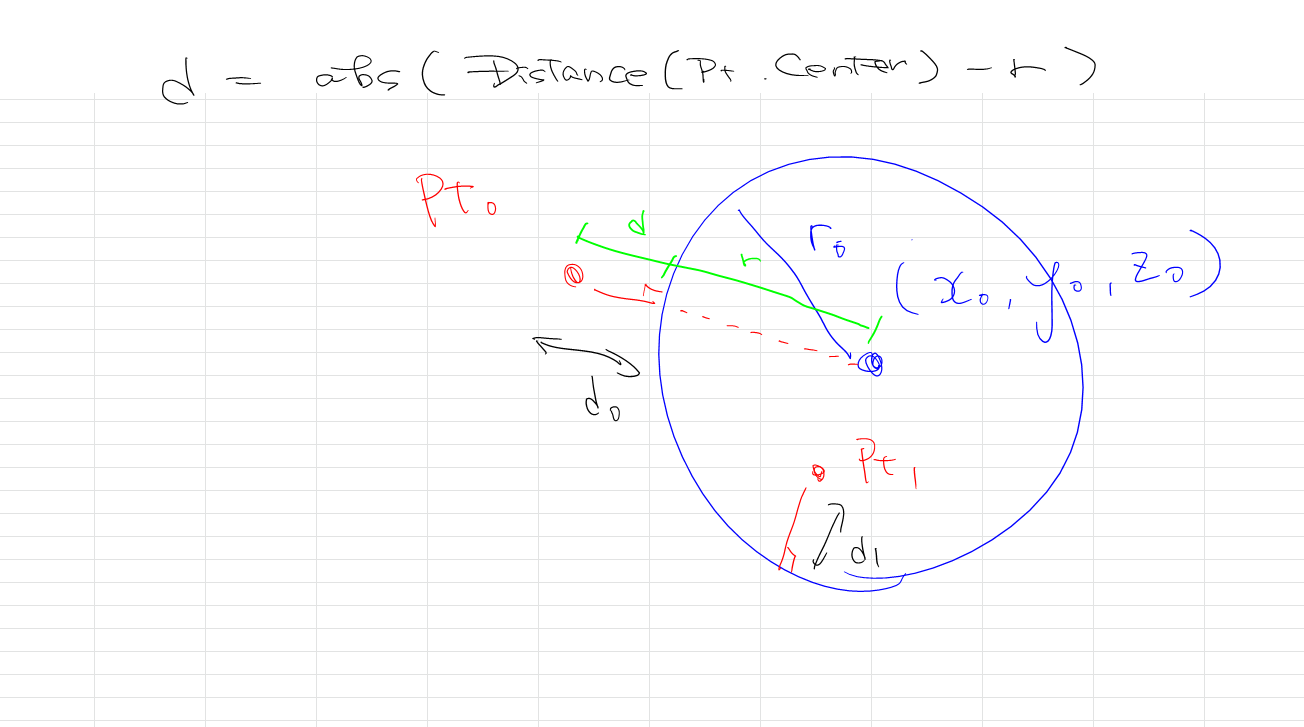 d = abs(Distance(Pt.Center) - r)
Pt₀
d
r
r₀
(x₀, y₀, z₀)
d₀
Pt₁
d₁